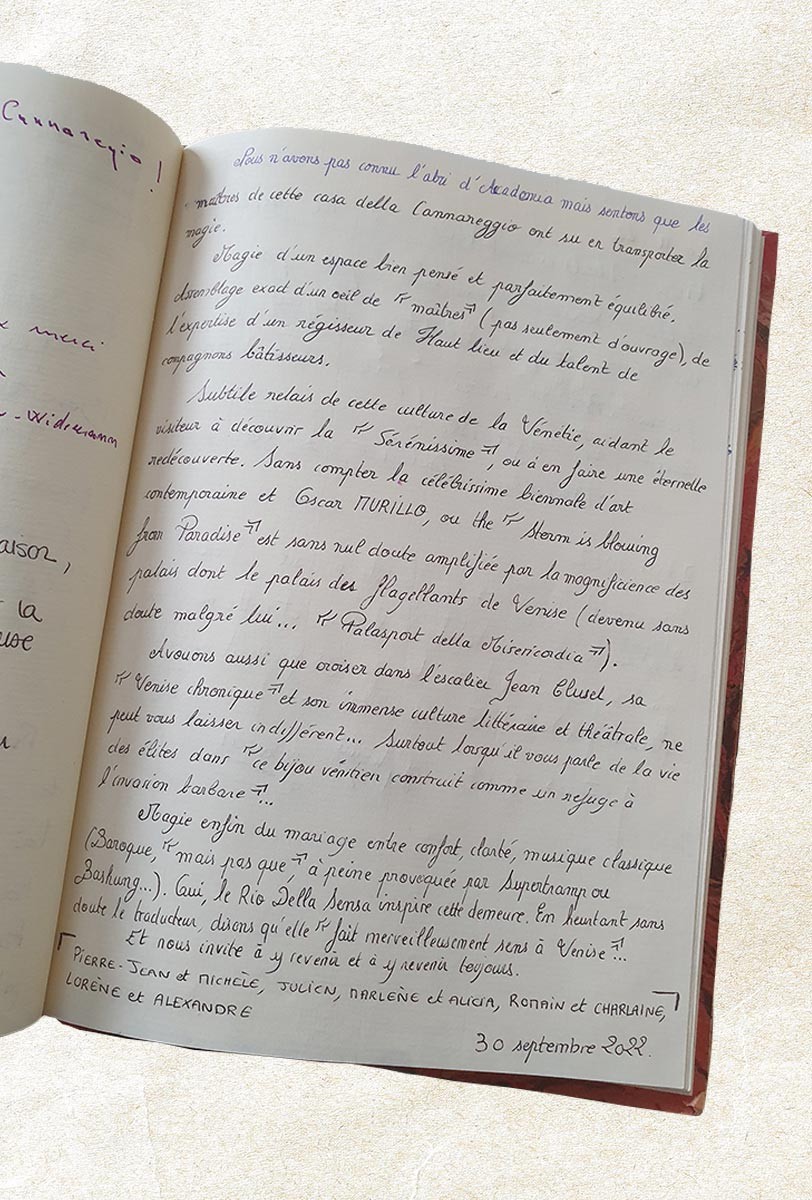 Cannaregio !
merci
- Widmann
aison,
la
use
Nous n'avons pas connu l'abri d'Academia mais sentons que les
maîtres de cette casa della Cannareggio ont su en transporter la
magie.
Magie d'un espace bien pensé et parfaitement équilibré.
Assemblage exact d'un oeil de "maîtres" (pas seulement d'ouvrage), de
l'expertise d'un régisseur de Haut lieu et du talent de
compagnons bâtisseurs.
Subtile relais de cette culture de la Vénétie, aidant le
visiteur à découvrir la "Sérénissime", ou à en faire une éternelle
redécouverte. Sans compter la célébrissime biennale d'art
contemporaine et Oscar MURILLO, ou the "Storm is blowing
from Paradise" est sans nul doute amplifiée par la magnificience des
palais dont le palais des flagellants de Venise (devenu sans
doute malgré lui... "Palasport della Misericordia").
Avouons aussi que croiser dans l'escalier Jean Clusel, sa
"Venise chronique" et son immense culture littéraire et théâtrale, ne
peut vous laisser indifférent... Surtout lorsqu'il vous parle de la vie
des élites dans "ce bijou vénitien construit comme un refuge à
l'invasion barbare"...
Magie enfin du mariage entre confort, clarté, musique classique
(Baroque, "mais pas que", à peine provoquée par Supertramp ou
Bashung...). Oui, le Rio Della Sensa inspire cette demeure. En heurtant sans
doute le traducteur, disons qu'elle "fait merveilleusement sens à Venise"...
Et nous invite à y revenir et à y revenir toujours.
PIERRE-JEAN et MICHÈLE, JULIEN, MARLÈNE et ALICIA, ROMAIN et CHARLAINE,
LORÈNE et ALEXANDRE
30 septembre 2022.